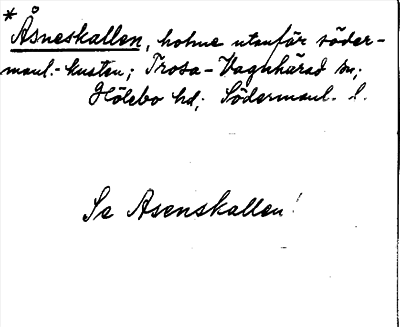 * Åsneskallen, holme utanför söder-
manl.-kusten; Trosa-Vagnhärad sn;
Hölebo hd; Södermanl. l.
Se Asenskallen!